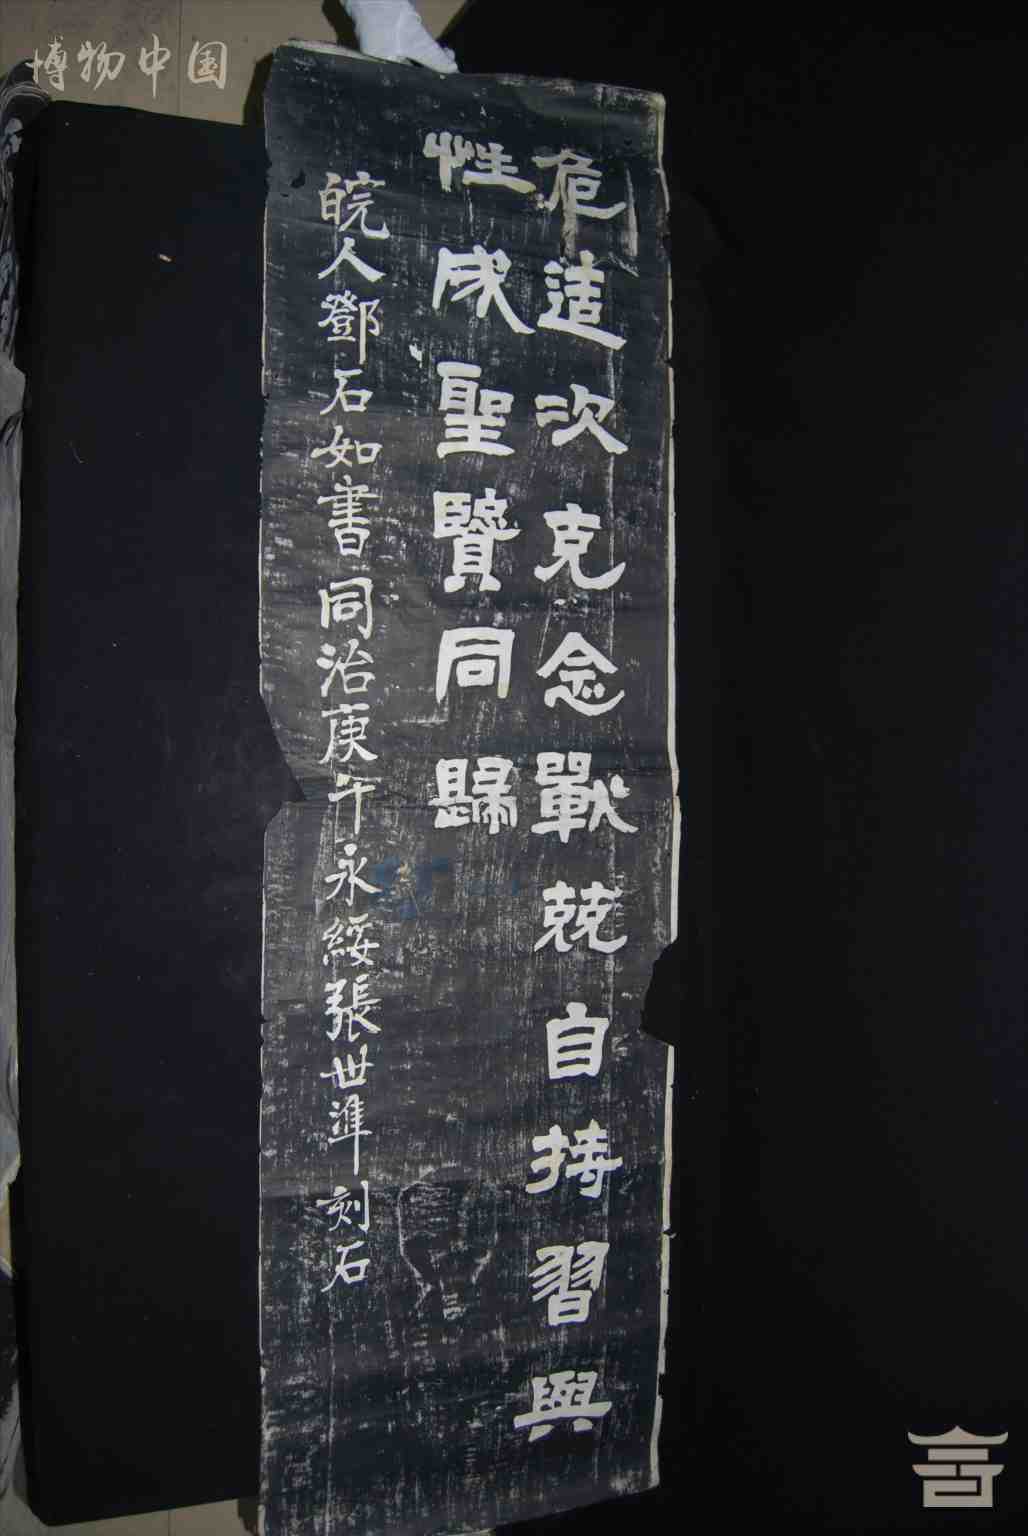 危造次克念戰兢自持習與
性成聖賢同歸
皖人鄧石如書同治庚午永綏張世準刻石
博物中国